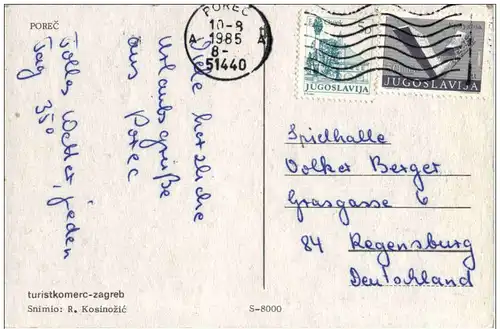 POREČ
POREČ
10-8
1985
8-
A A
51440
JUGOSLAVIJA
JUGOSLAVIJA
Viele herzliche
Urlaubsgrüße
aus
Porec
Tolles Wetter, jeden
Tag 35°
Spielhalle
Volker Berger
Grasgasse 6
84 Regensburg
Deutschland
turistkomerc-zagreb
Snimio: R. Kosinožić
S-8000